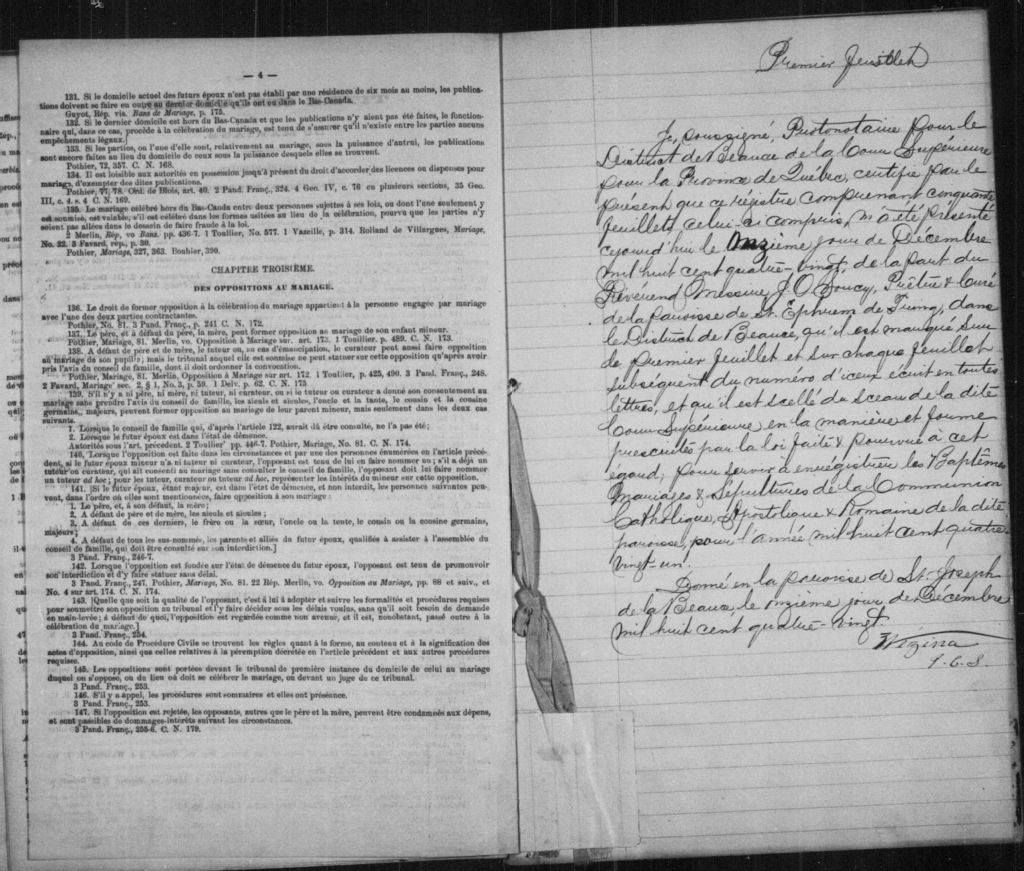 — 4 —
131. Si le domicile actuel des futurs époux n'est pas établi par une résidence de six mois au moins, les publica-
tions doivent se faire en outre au dernier domicile qu'ils ont eu dans le Bas-Canada.
Guyot, Rép. vis. Bans de Mariage, p. 175.
132. Si le dernier domicile est hors du Bas-Canada et que les publications n'y aient pas été faites, le fonction-
naire qui, dans ce cas, procède à la célébration du mariage, est tenu de s'assurer qu'il n'existe entre les parties aucuns
empêchements légaux.]
133. Si les parties, ou l'une d'elle, sont, relativement au mariage, sous la puissance d'autrui, les publications
sont encore faites au lieu du domicile de ceux sous la puissance desquels elles se trouvent.
Pothier, 72, 357. C. N. 168.
134. Il est loisible aux autorités en possession jusqu'à présent du droit d'accorder les licences ou dispenses pour
mariage, d'exempter des dites publications.
Pothier, 77, 78. Ord. de Blois, art. 40. 2 Pand. Franç., 324. 4 Geo. IV, c. 76 en plusieurs sections, 35 Geo.
III, c. 4, s. 4 C. N. 169.
135. Le mariage célébré hors du Bas-Canda entre deux personnes sujettes à ses lois, ou dont l'une seulement y
est soumise, est valable, s'il est célébré dans les formes usitées au lieu de la célébration, pourvu que les parties n'y
soient pas allées dans le dessein de faire fraude à la loi.
2 Merlin, Rép, vo Bans. pp. 436-7. 1 Toullier, No. 577. 1 Vazeille, p. 314. Rolland de Villargues, Mariage,
No. 22. 3 Favard, rép., p. 30.
Pothier, Mariage, 327, 363. Bouhier, 390.
CHAPITRE TROISIÈME.
DES OPPOSITIONS AU MARIAGE.
136. Le droit de former opposition à la célébration du mariage appartient à la personne engagée par mariage
avec l'une des deux parties contractantes.
Pothier, No. 81. 3 Pand. Franç., p. 241 C. N. 172.
137. Le père, et à défaut du père, la mère, peut former opposition au mariage de son enfant mineur.
Pothier, Mariage, 81. Merlin, vo. Opposition à Mariage sur. art. 173. 1 Toullier. p. 489. C. N. 173.
138. A défaut de père et de mère, le tuteur ou, au cas d'émancipation, le curateur peut aussi faire opposition
au mariage de son pupille; mais le tribunal auquel elle est soumise ne peut statuer sur cette opposition qu'après avoir
pris l'avis du conseil de famille, dont il doit ordonner la convocation.
Pothier, Mariage, 81. Merlin, Opposition à Mariage sur art. 172. 1 Toullier, p. 425, 490. 3 Pand. Franç., 248.
2 Favard, Mariage' sec. 2, § 1, No. 3, p. 59. 1 Delv. p. 62. C. N. 175.
139. S'il n'y a ni père, ni mère, ni tuteur, ni curateur, ou si le tuteur ou curateur a donné son consentement au
mariage sans prendre l'avis du conseil de famille, les aïeuls et aïeules, l'oncle et la tante, le cousin et la cousine
germains,, majeurs, peuvent former opposition au mariage de leur parent mineur, mais seulement dans les deux cas
suivants.
1. Lorsque le conseil de famille qui, d'après l'article 122, aurait dû être consulté, ne l'a pas été;
2. Lorsque le futur époux est dans l'état de démence.
Autorités sous l'art. précédent. 2 Toullier' pp 446-7. Pothier, Mariage, No. 81. C. N. 174.
140. Lorsque l'opposition est faite dans les circonstances et par une des personnes énumérées en l'article précé-
dent, si le futur époux mineur n'a ni tuteur ni curateur, l'opposant est tenu de lui en faire nommer un; s'il a déjà un
tuteur ou curateur, qui ait consenti au mariage sans consulter le conseil de famille, l'opposant doit lui faire nommer
un tuteur ad hoc; pour les tuteur, curateur ou tuteur ad hoc, représenter les intérêts du mineur sur cette opposition.
141. [Si le futur époux, étant majeur, est dans l'état de démence, et non interdit, les personnes suivantes peu-
vent, dans l'ordre où elles sont mentionnées, faire opposition à son mariage:
1. Le père, et, à son défaut, la mère;
2. A défaut de père et de mère, les aïeuls et aïeules;
3. A défaut de ces derniers, le frère ou la sœur, l'oncle ou la tante, le cousin ou la cousine germains,
majeurs;
4. A défaut de tous les sus-nommés, les parents et alliés du futur époux, qualifiés à assister à l'assemblée du
conseil de famille, qui doit être consulté sur son interdiction.]
3 Pand. Franç., 246-7.
142. Lorsque l'opposition est fondée sur l'état de démence du futur époux, l'opposant est tenu de promouvoir
son interdiction et d'y faire statuer sans délai.
3 Pand. Franç., 247. Pothier, Mariage, No. 81. 22 Rép. Merlin, vo. Opposition au Mariage, pp. 88 et suiv., et
No. 4 sur art. 174. C. N. 174.
143. [Quelle que soit la qualité de l'opposant, c'est à lui à adopter et suivre les formalités et procédures requises
pour soumettre son opposition au tribunal et l'y faire décider sous les délais voulus, sans qu'il soit besoin de demande
en main-levée; à défaut de quoi, l'opposition est regardée comme non avenue, et il est, nonobstant, passé outre à la
célébration du mariage.]
3 Pand. Franç., 254.
144. Au code de Procédure Civile se trouvent les règles quant à la forme, au contenu et à la signification des
actes d'opposition, ainsi que celles relatives à la péremption décrétée en l'article précédent et aux autres procédures
requises.
145. Les oppositions sont portées devant le tribunal de première instance du domicile de celui au mariage
duquel on s'oppose, ou du lieu où doit se célébrer le mariage, ou devant un juge de ce tribunal.
3 Pand. Franç., 253.
146. S'il y a appel, les procédures sont sommaires et elles ont préséance.
3 Pand. Franç., 253.
147. Si l'opposition est rejetée, les opposants, autres que le père et la mère, peuvent être condamnés aux dépens,
et sont passibles de dommages-intérêts suivant les circonstances.
3 Pand. Franç., 255-6. C. N. 179.
Premier feuillet
Je soussigné, Protonotaire pour le
District de Beauce de la Cour Supérieure
pour la Province de Québec, certifie par le
présent que ce régistre comprenant cinquante
feuillets celui-ci compris, m'a été présenté
cejourd'hui le onzième jour de Décembre
mil huit cent quatre-vingt, de la part du
Révérend Messire J. O. Soucy, Prêtre & Curé
de la paroisse de St. Ephrem de Tring, dans
le District de Beauce, qu'il est marqué sur
le premier feuillet et sur chaque feuillet
subséquent du numéro d'iceux écrit en toutes
lettres, et qu'il est scellé du sceau de la dite
Cour Supérieure, en la manière et forme
prescrites par la loi faite & pourvue à cet
égard, pour servir à enregistrer les Baptêmes
Mariages & Sépultures de la Communion
Catholique, Apostolique & Romaine de la dite
paroisse, pour l'année mil huit cent quatre
vingt un.
Donné en la paroisse de St. Joseph
de la Beauce, le onzième jour de Décembre
mil huit cent quatre-vingt.
Vézina
P. C. S.